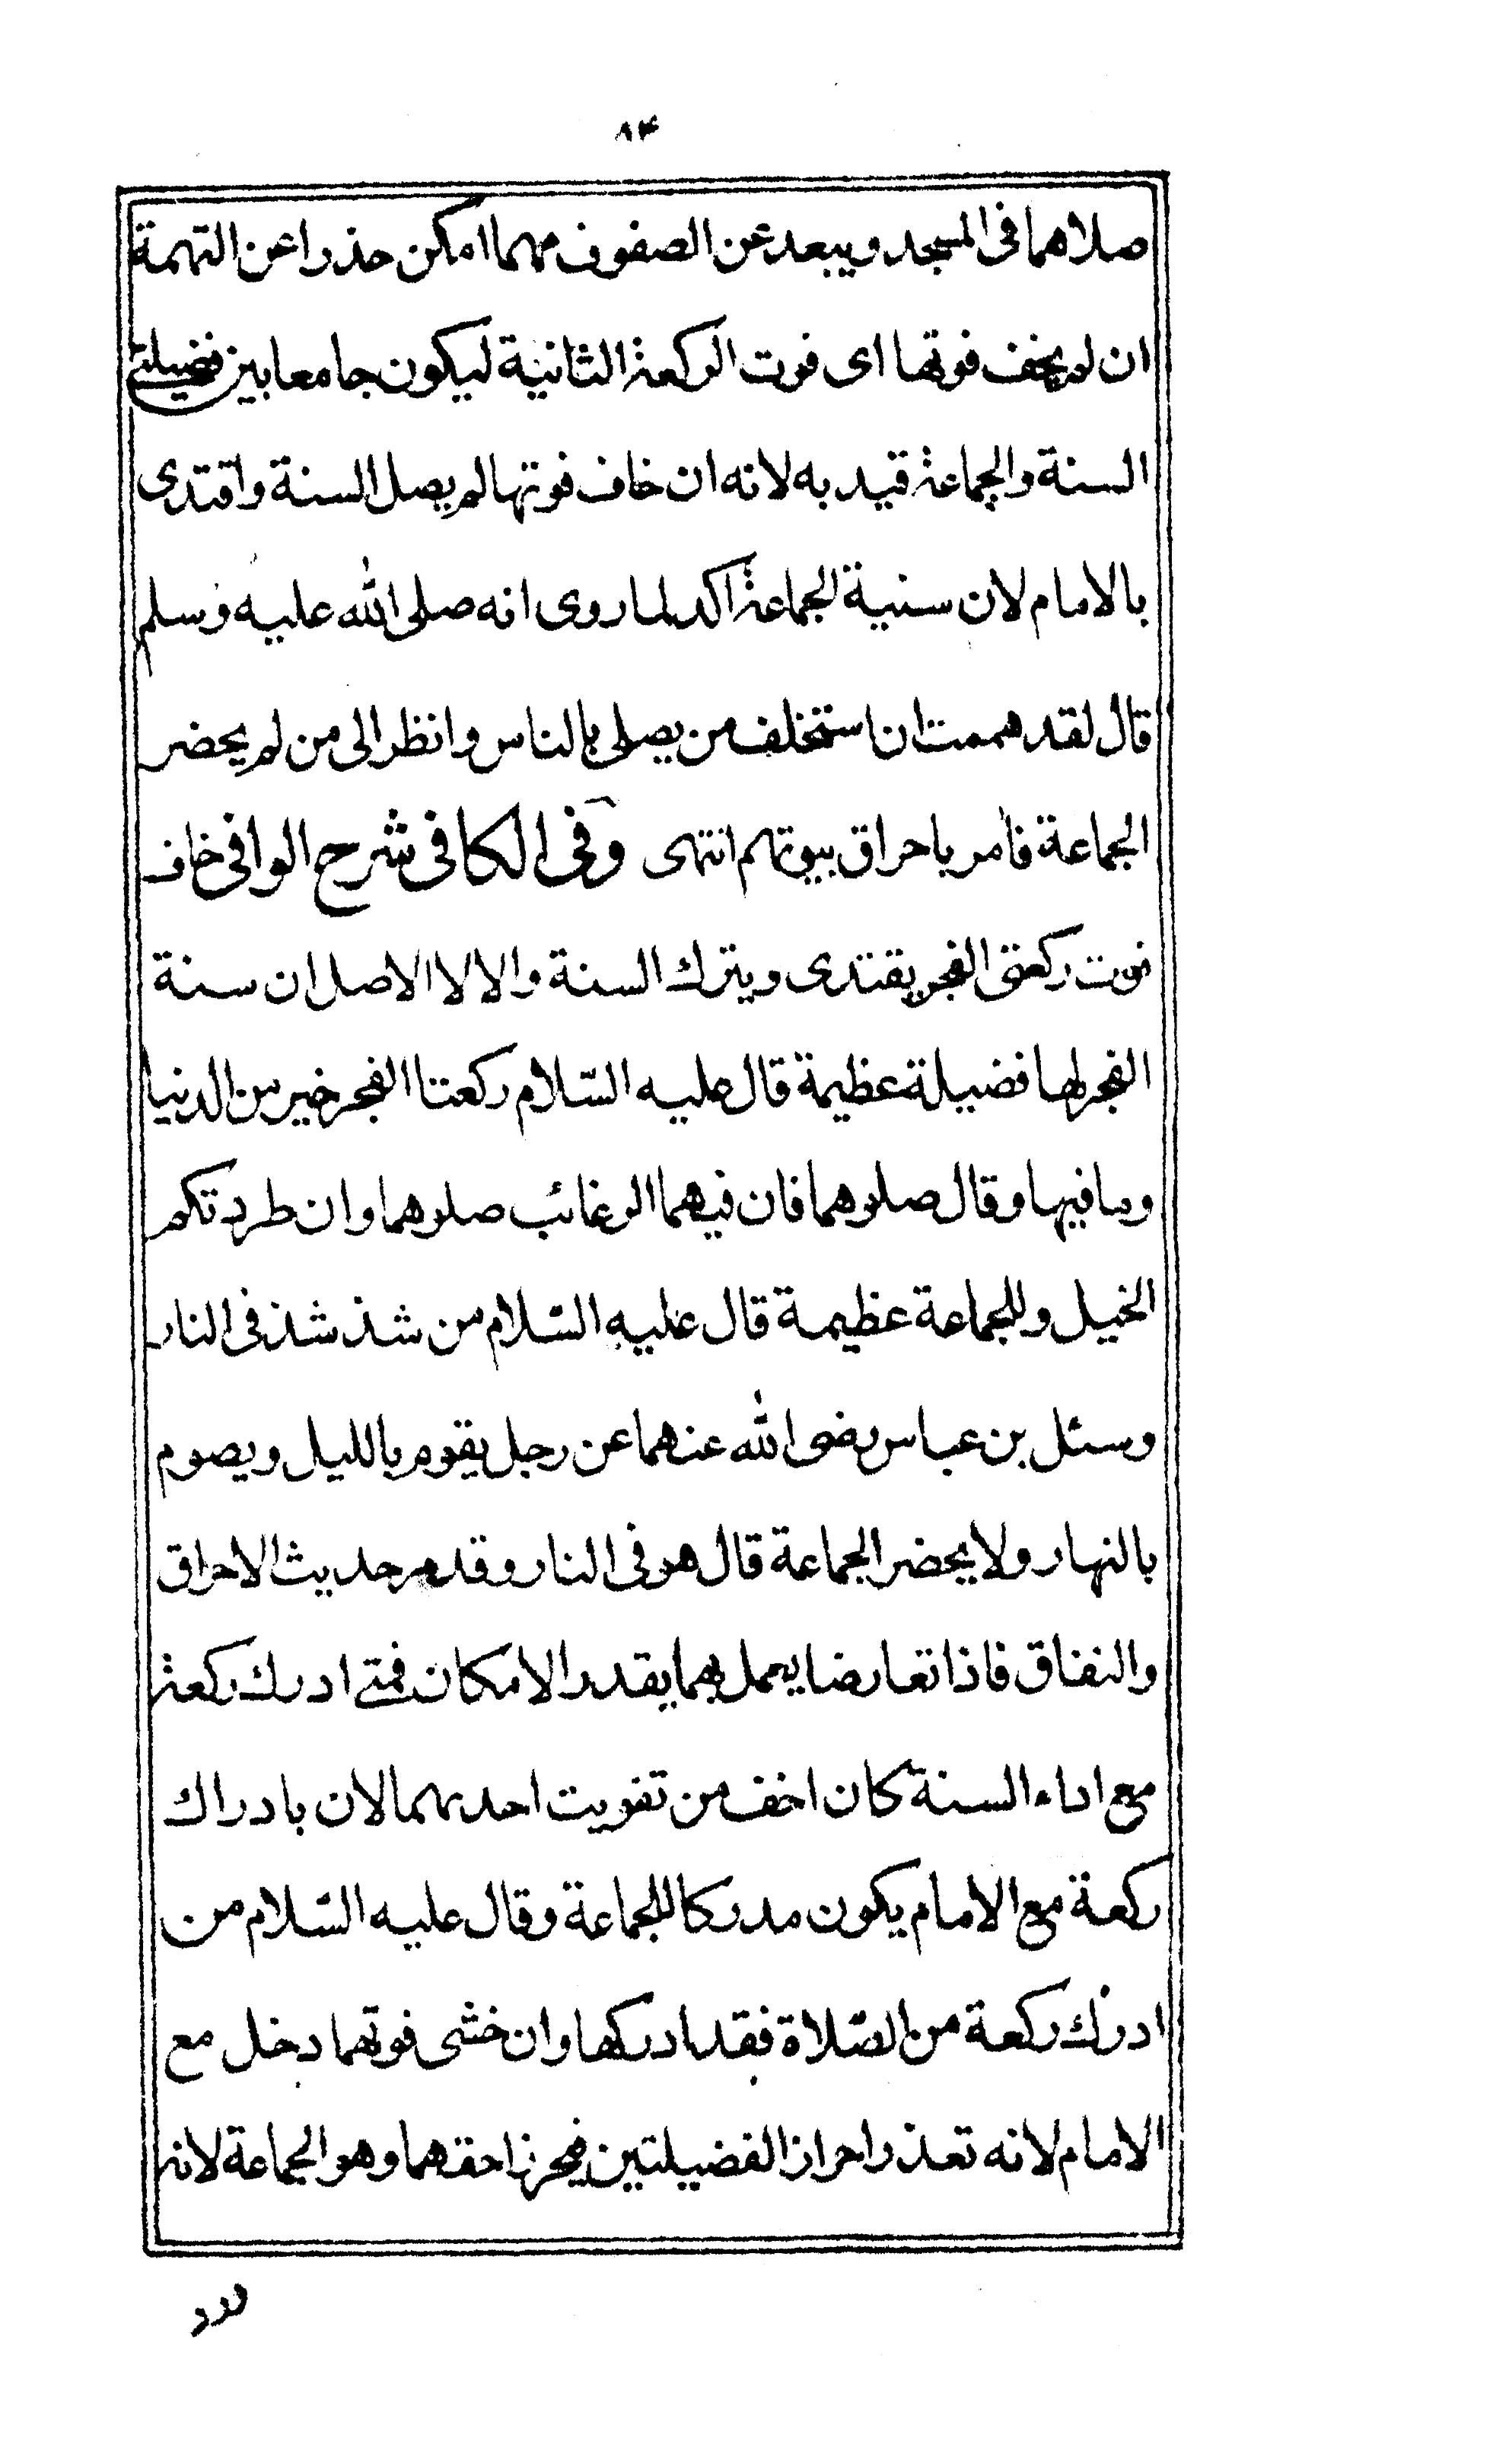 ۸۴
صلاهما فى المسجد ويبعد عن الصفوف مهما امكن حذرا عن التهمة
ان لم يخف فوتها اى فوت الركعة الثانية ليكون جامعا بين فضيلتى
السنة والجماعة قيد به لانه ان خاف فوتها لم يصل السنة واقتدى
بالامام لان سنية الجماعة اكد لما روى انه صلى الله عليه وسلم
قال لقد هممت ان استخلف من يصلى بالناس وانظر الى من لم يحضر
الجماعة فامر باحراق بيوتهم انتهى وفى الكافى شرح الوافى خاف
فوت ركعتى الفجر يقتدى ويترك السنة والا لا الاصل ان سنة
الفجر لها فضيلة عظيمة قال عليه السّلام ركعتا الفجر خير من الدنيا
وما فيها وقال صلوهما فان فيهما الرغائب صلوهما وان طردتكم
الخيل وللجماعة عظيمة قال عليه السّلام من شذ شذ فى النار
وسئل بن عباس رضى الله عنهما عن رجل يقوم بالليل ويصوم
بالنهار ولا يحضر الجماعة قال هو فى النار وقد مر حديث الاحراق
والنفاق فاذا تعارضا يعمل بهما بقدر الامكان فمتى ادرك ركعة
مع اداء السنة كان اخف من تفويت احدهما لان بادراك
ركعة مع الامام يكون مدركا للجماعة وقال عليه السّلام من
ادرك ركعة من الصّلاة فقد ادركها وان خشى فوتهما دخل مع
الامام لانه تعذر احراز الفضيلتين فيحرز احقهما وهو الجماعة لانه